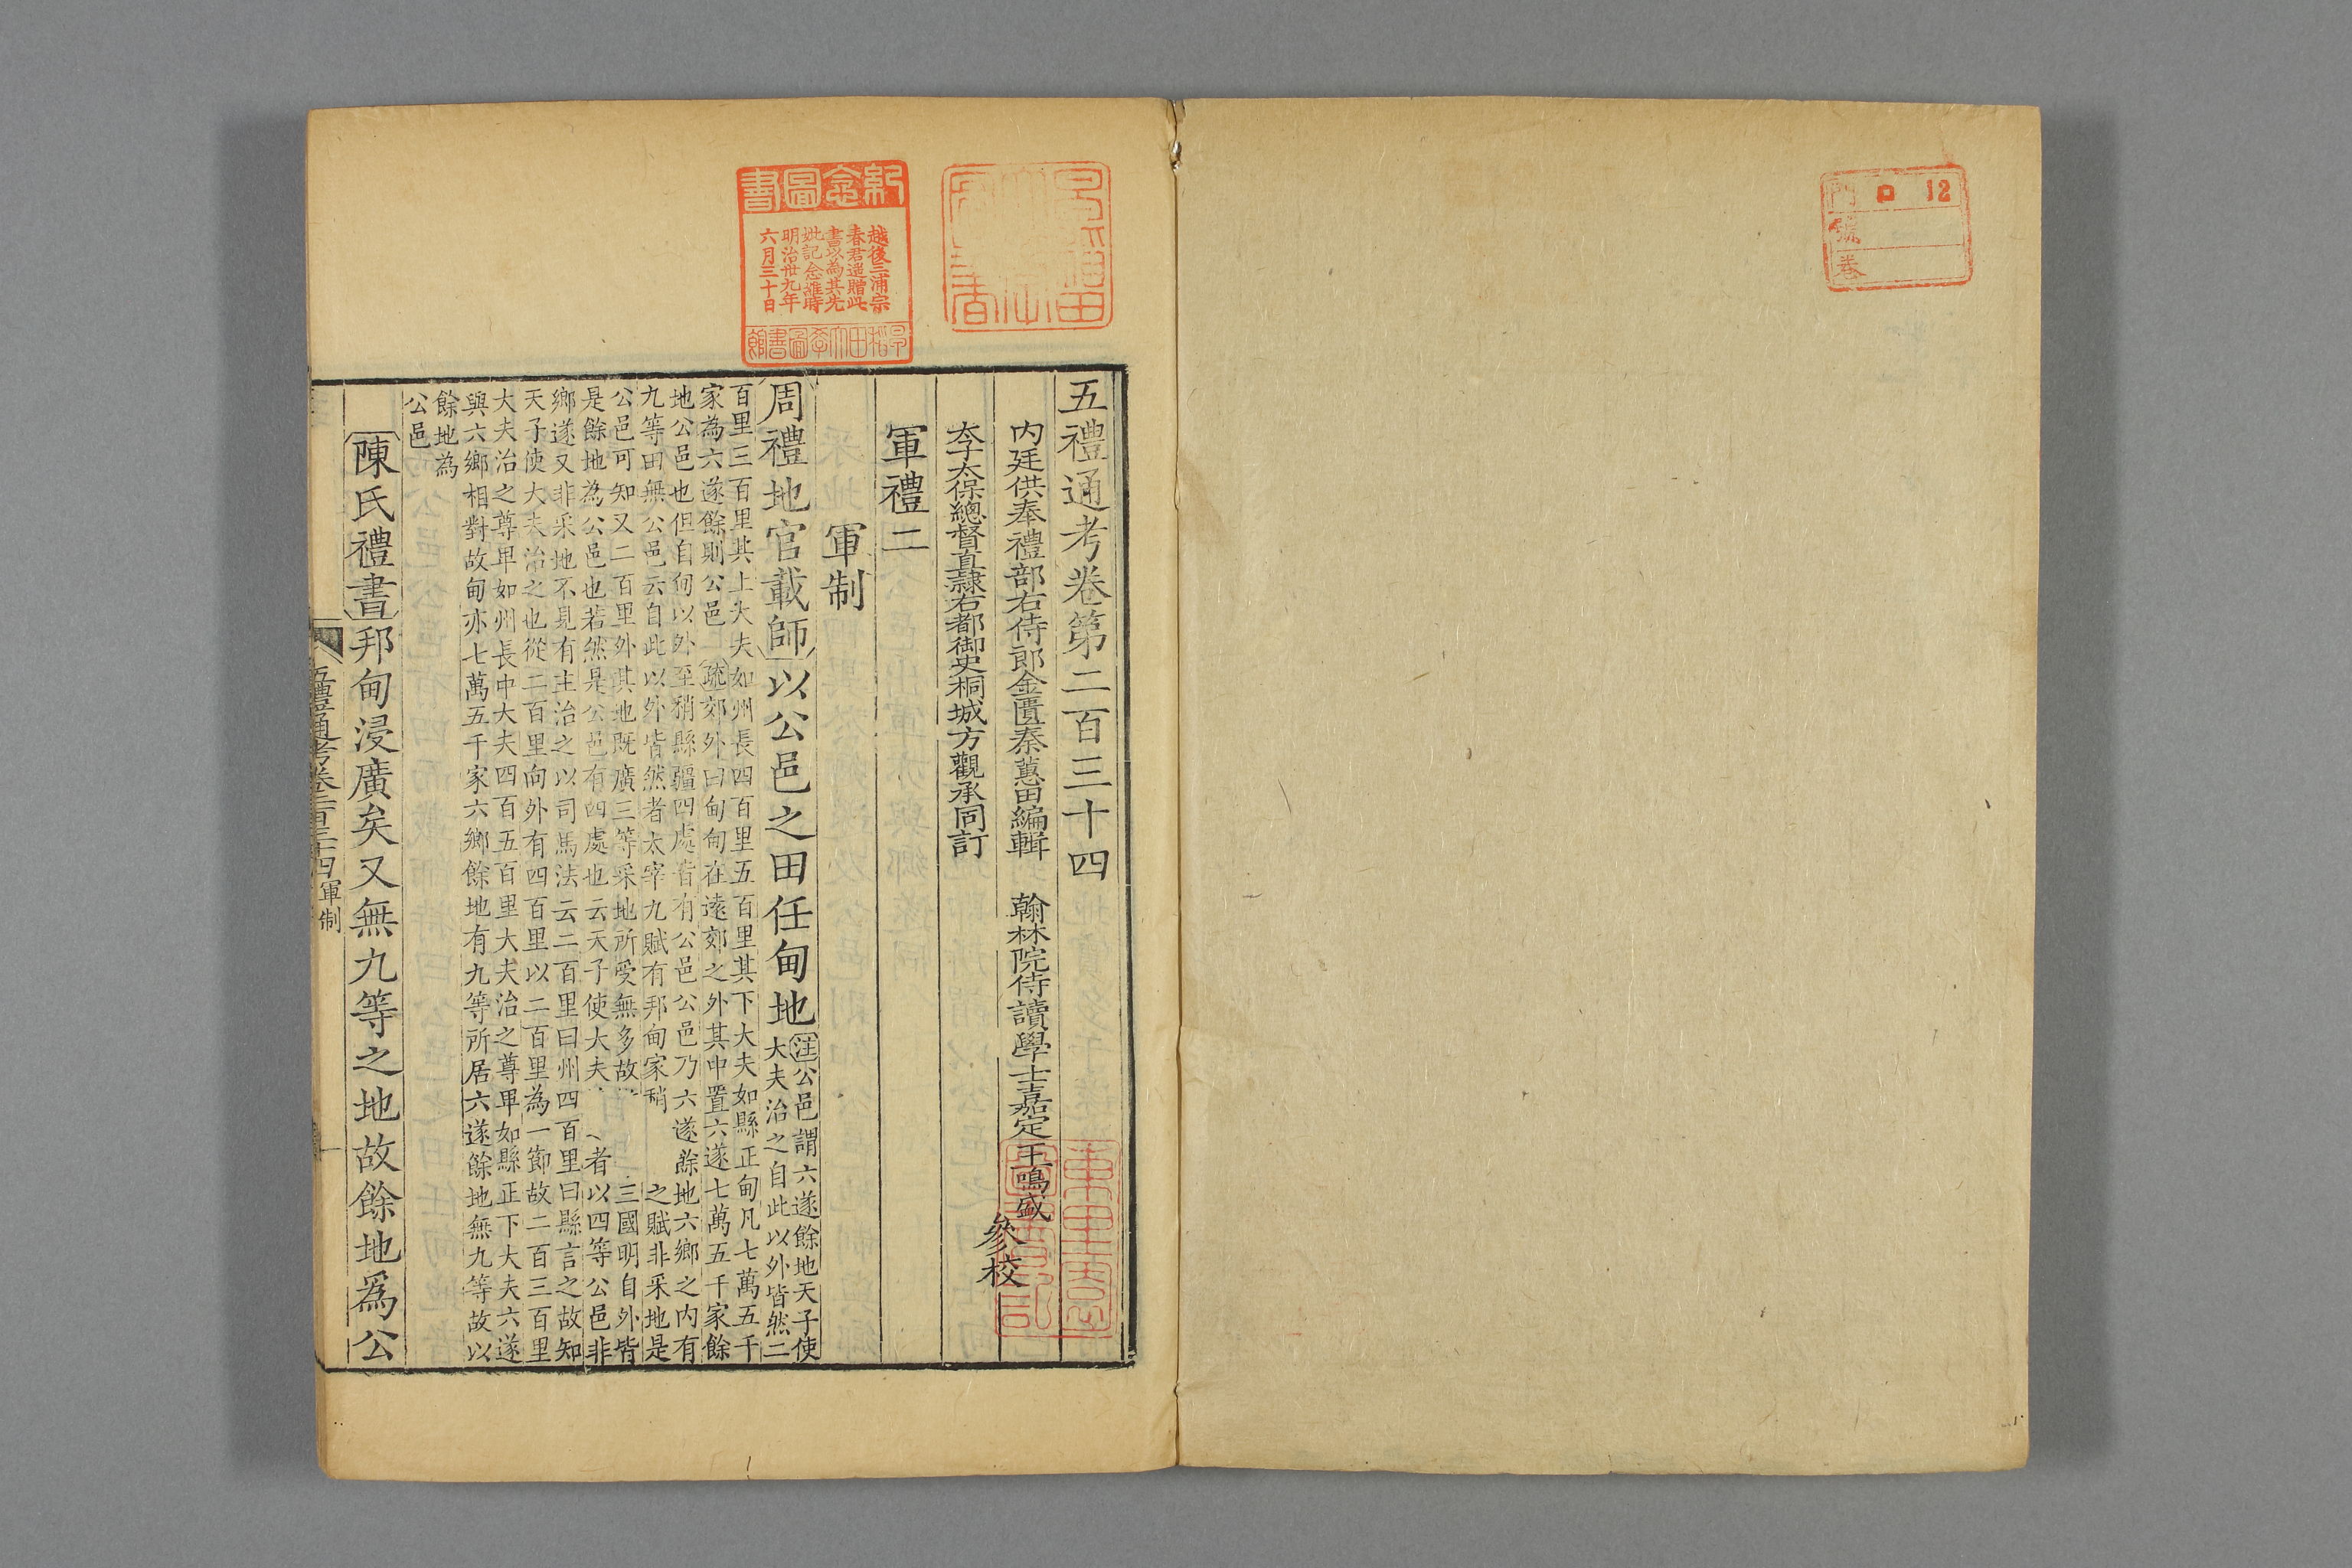 12
門
號
卷
紀念圖書
越後三浦宗
春君遥贈此
書以為其先
妣記念維時
明治卅九年
六月三十日
早稻田大學圖書館
五禮通考卷第二百三十四
内廷供奉禮部右侍郎金匱秦蕙田編輯　翰林院侍讀學士嘉定王鳴盛
參校
太子太保總督直隷右都御史桐城方觀承同訂
軍禮二
軍制
周禮地官載師以公邑之田任甸地
注公邑謂六遂餘地天子使
大夫治之自此以外皆然二
百里三百里其上大夫如州長四百里五百里其下大夫如縣正甸凡七萬五千
家為六遂餘則公邑　疏郊外曰甸甸在遠郊之外其中置六遂七萬五千家餘
地公邑也但自甸以外至稍縣疆四處皆有公邑公邑乃六遂餘地六鄉之内有
九等田無公邑云自此以外皆然者太宰九賦有邦甸家稍　之賦非采地是
公邑可知又二百里外其地既廣三等采地所受無多故　三國明自外皆
是餘地為公邑也若然是公邑有四處也云天子使大夫　者以四等公邑非
鄉遂又非采地不見有主治之以司馬法云二百里曰州四百里曰縣言之故知
天子使大夫治之也從二百里向外有四百里以二百里為一節故二百三百里
大夫治之尊卑如州長中大夫四百五百里大夫治之尊卑如縣正下大夫六遂
與六鄉相對故甸亦七萬五千家六鄉餘地有九等所居六遂餘地無九等故以
餘地為
公邑
陳氏禮書邦甸浸廣矣又無九等之地故餘地爲公
五禮通考卷二百三十四　軍制　一